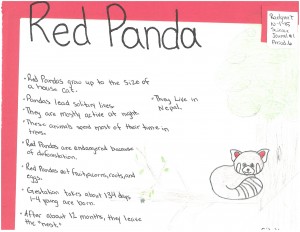 Red Panda
Science
Period 6
• Red Pandas grow up to the size of
a house cat.
• Pandas lead solitary lives
• They are mostly active at night.
• These animals spend most of their time in
trees.
• Red Pandas are endangered because
of deforestation.
• Red Pandas eat fruit, acorns, roots, and
eggs.
• Gestation takes about 134 days
1-4 young are born.
• After about 12 months, they leave
the "nest."
• They Live in
Nepal.